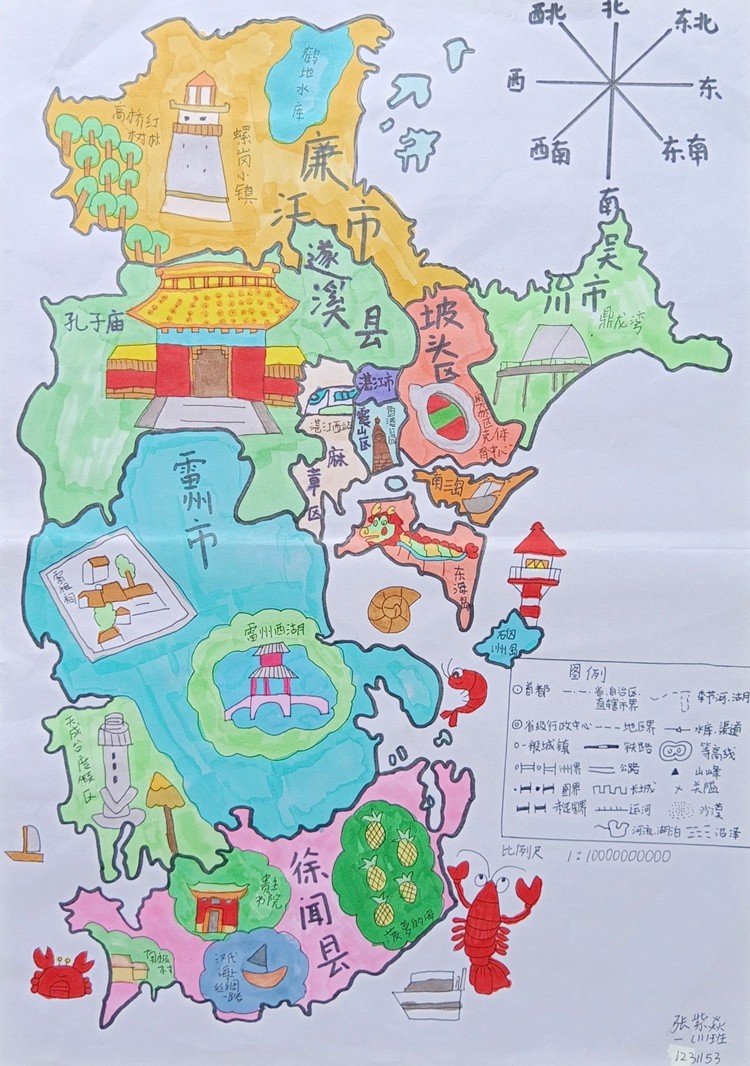 西北
北
东北
西
东
西南
东南
南
鹤地水库
高桥红
树林
螺岗小镇
廉江市
遂溪县
吴
流市
鼎龙湾
孔子庙
坡头区
湛江市
湛江西站
霞山区
麻章区
南三岛
雷州市
东海岛
雷祖祠
硇
洲岛
雷州西湖
天成台度假区
图例
首都
省、自治区、
直辖市界
季节河、湖
省级行政中心
地区界
水库、渠道
一般城镇
铁路
等高线
洲界
公路
山峰
国界
长城
关隘
未定国界
运河
沙漠
河流、湖泊
沼泽
比例尺
1:10000000000
徐闻县
贵生
书院
菠萝的海
汉代
海上
丝绸
路
张紫焱
1231153